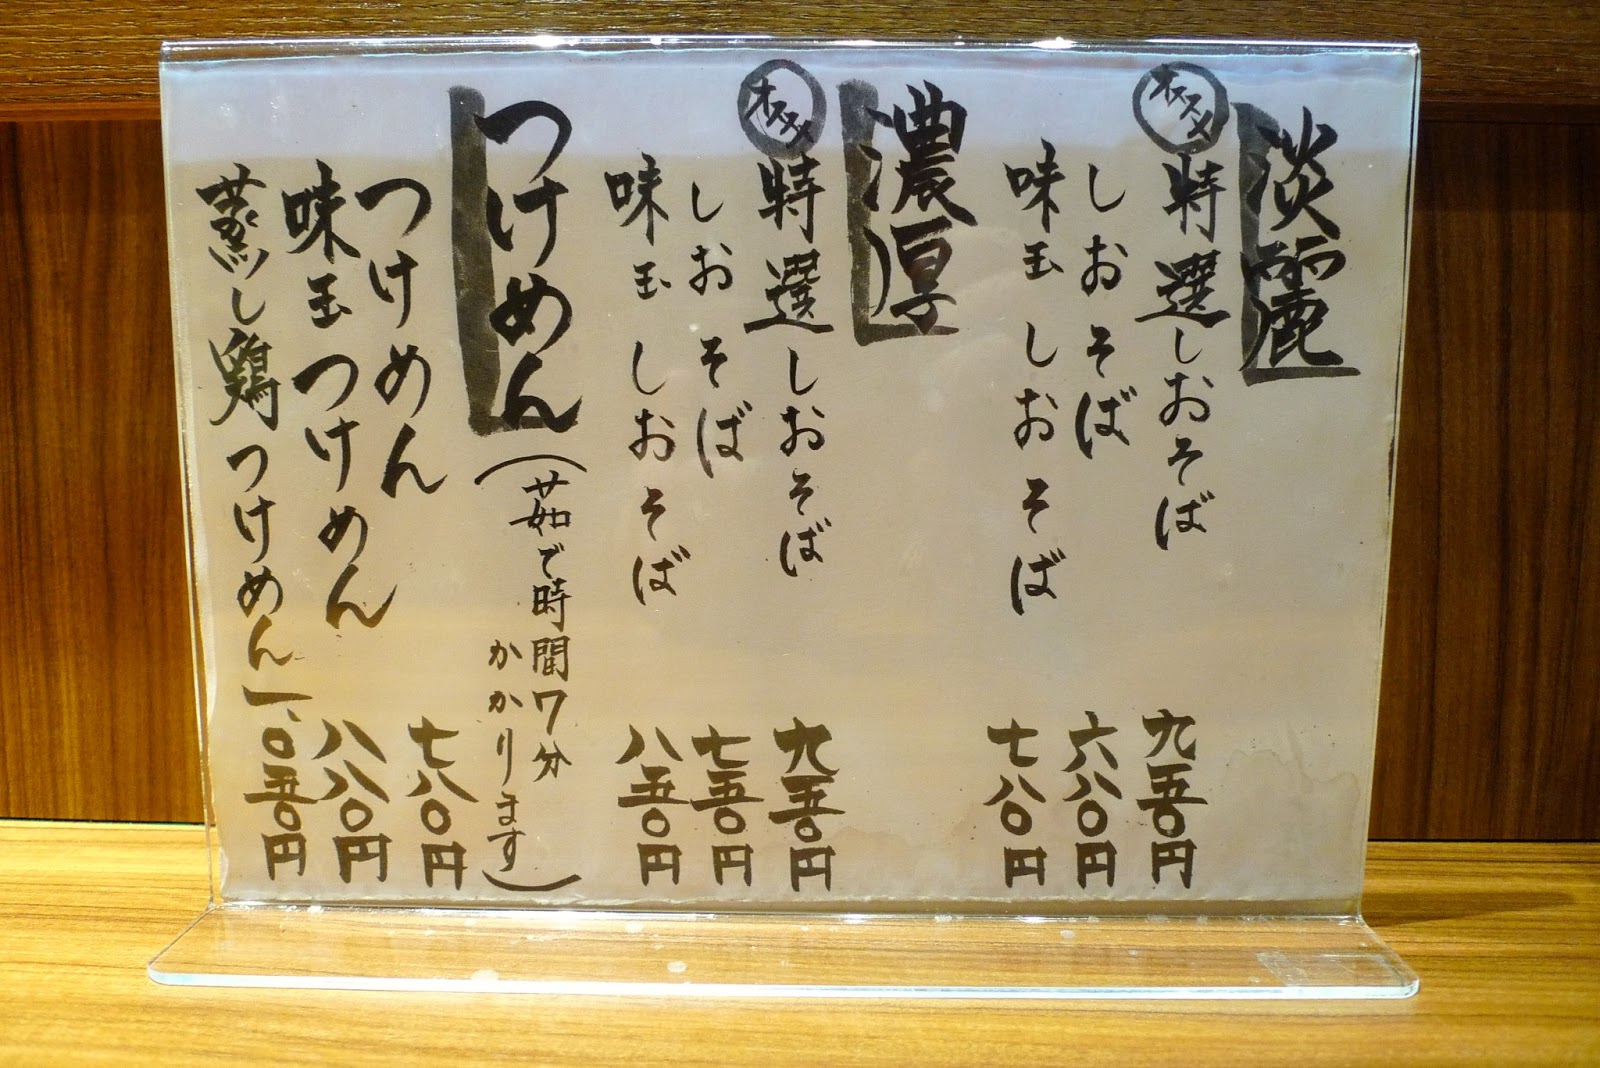 淡麗
オススメ
特選しおそば 九五〇円
しおそば 六八〇円
味玉しおそば 七八〇円
濃厚
オススメ
特選しおそば 九五〇円
しおそば 七五〇円
味玉しおそば 八五〇円
つけめん
(茹で時間7分
かかります)
つけめん 七八〇円
味玉つけめん 八八〇円
蒸し鶏つけめん 一、〇五〇円